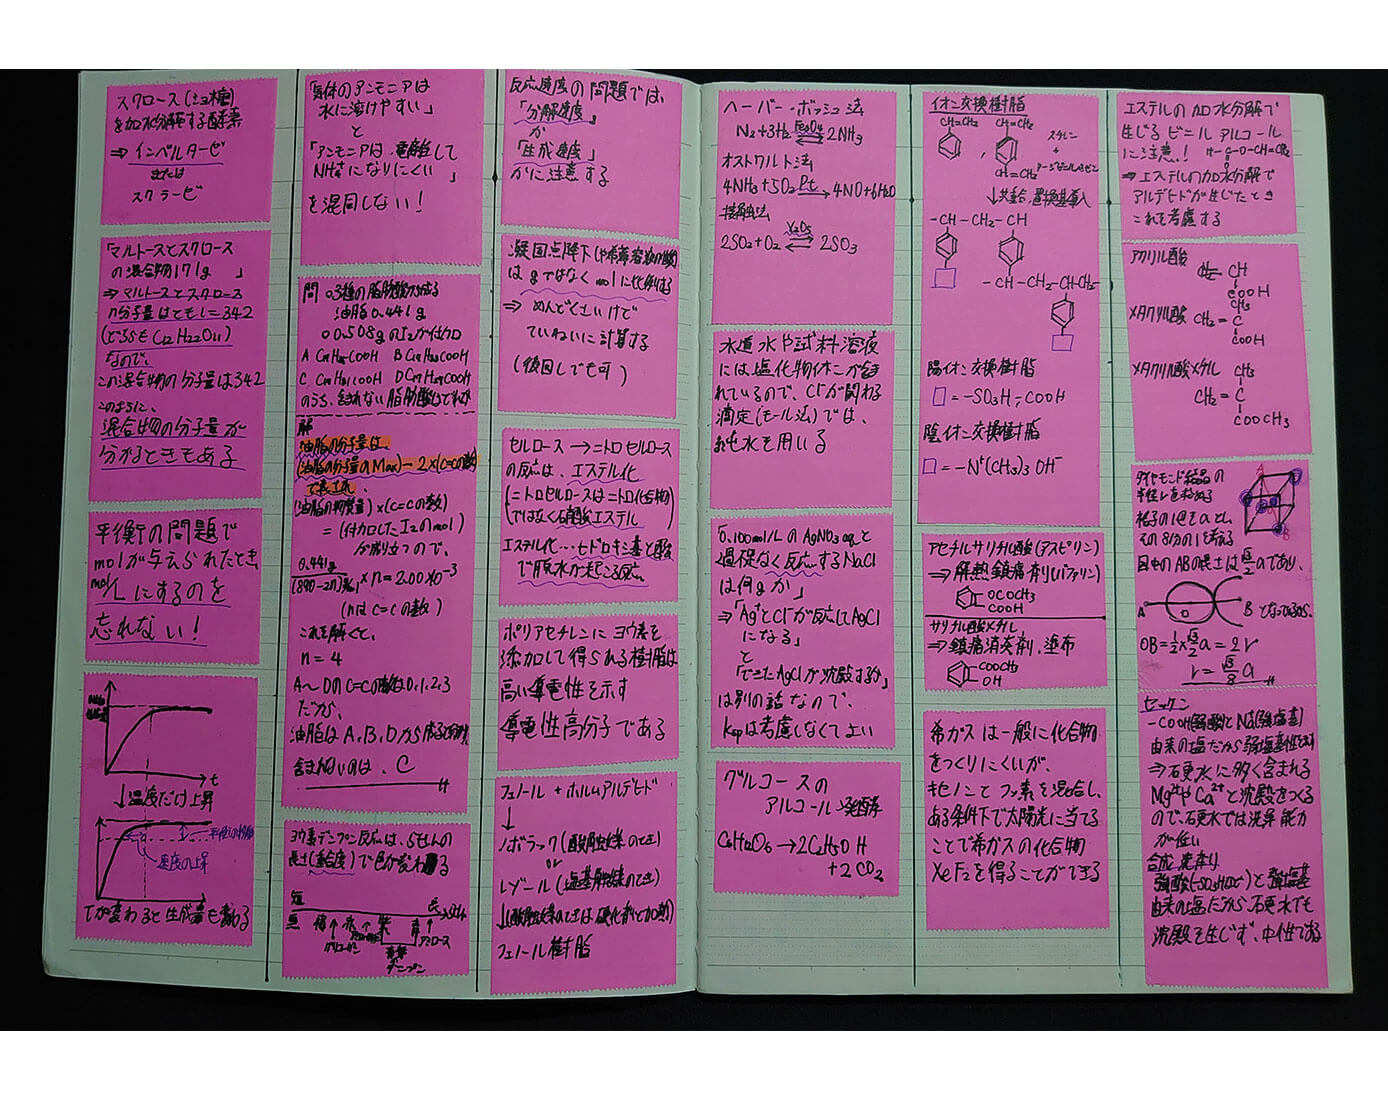 スクロース(ショ糖)
を加水分解する酵素
⇒ インベルターゼ
または
スクラーゼ
「マルトースとスクロース
の混合物171g 」
⇒ マルトースとスクロース
の分子量はともに342
(どちらもC12H22O11)
なので、
この混合物の分子量は342
このように、
混合物の分子量が
分かるときもある
平衡の問題で
molが与えられたとき、
mol/Lにするのを
忘れない!
t
↓温度だけ上昇
平衡の移動
速度の上昇
Tが変わると生成量も変わる
「気体のアンモニアは
水に溶けやすい」
と
「アンモニアは電離して
NH4+になりにくい 」
を混同しない!
問 ○3種の脂肪酸から成る
油脂0.441g
○0.508gのI2が付加
A C17H35COOH B C17H33COOH
C C17H31COOH D C17H29COOH
のうち、含まれない脂肪酸はどれか
解
油脂の分子量は、
(油脂の分子量のMax)-2×(C=Cの数)
で表され、
(油脂の物質量)×(C=Cの数)
=(付加したI2のmol)
が成り立つので、
0.441g
(890-2n)g/mol × n = 2.00×10-3
(nはC=Cの数)
これを解くと、
n=4
A～DのC=Cの数は0,1,2,3
だから、
油脂はA,B,Dから成ると分かり
含まれないのは、C
ヨウ素デンプン反応は、らせんの
長さ(重合度)で色が変わる
短 長
無 褐 赤 紫 青
グリコーゲン
アミロペクチン
アミロース
青紫
デンプン
反応速度の問題では、
「分解速度」
か
「生成速度」
かに注意する
凝固点降下(や希薄溶液の性質)
はgではなくmolに比例する
⇒ めんどくさいけど
ていねいに計算する
(後回しでも可)
セルロース→ニトロセルロース
の反応は、エステル化
(ニトロセルロースはニトロ化合物)
ではなく硝酸エステル
エステル化…ヒドロキシ基と酸
で脱水が起こる反応
ポリアセチレンにヨウ素を
添加して得られる樹脂は
高い導電性を示す
導電性高分子である
フェノール+ホルムアルデヒド
↓
ノボラック(酸触媒のとき)
or
レゾール(塩基触媒のとき)
↓(酸触媒のときは硬化剤と加熱)
フェノール樹脂
ハーバー・ボッシュ法
N2+3H2 Fe3O4 ⇄ 2NH3
オストワルト法
4NH3+5O2 Pt→ 4NO+6H2O
接触法
2SO2+O2 V2O5 ⇄ 2SO3
水道水や試料溶液
には塩化物イオンが含ま
れているので、Cl-が関わる
滴定(モール法)では、
純水を用いる
「0.100mol/LのAgNO3aqと
過不足なく反応するNaCl
は何gか」
⇒「Ag+とCl-が反応してAgCl
になる」
と
「できたAgClが沈殿するか」
は別の話なので、
Kspは考慮しなくてよい
グルコースの
アルコール発酵
C6H12O6→2C2H5OH
+2CO2
イオン交換樹脂
CH=CH2 CH=CH2
スチレン
+
p-ジビニルベンゼン
CH=CH2
↓共重合、置換基導入
-CH-CH2-CH
-CH-CH2-CH-CH2-
陽イオン交換樹脂
□=-SO3H,-COOH
陰イオン交換樹脂
□=-N+(CH3)3OH-
アセチルサリチル酸(アスピリン)
⇒解熱鎮痛剤(バファリン)
OCOCH3
COOH
サリチル酸メチル
⇒鎮痛消炎剤、塗布
COOCH3
OH
希ガスは一般に化合物
をつくりにくいが、
キセノンとフッ素を混合し、
ある条件下で太陽光に当てる
ことで希ガスの化合物
XeF2を得ることができる
エステルの加水分解で
生じるビニルアルコール
に注意! H-C-O-CH=CH2
O
⇒エステルの加水分解で
アルデヒドが生じたとき
これを考慮する
アクリル酸
CH2=CH
COOH
メタクリル酸
CH3
CH2=C
COOH
メタクリル酸メチル
CH3
CH2=C
COOCH3
ダイヤモンド結晶の
半径rを求める
格子の1辺をaとし、
その8分の1を考える
図中のABの長さは√3/2aであり、
A B となっているから、
O
OB=1/2×√3/2a=2r
r=√3/8a
セッケン
-COOH(弱酸)とNa(強塩基)
由来の塩だから弱塩基性を示す
⇒硬水に多く含まれる
Mg2+やCa2+と沈殿をつくる
ので、硬水では洗浄能力
が低い
合成洗剤
強酸(-SO3Hなど)と強塩基
由来の塩だから硬水でも
沈殿を生じず、中性である